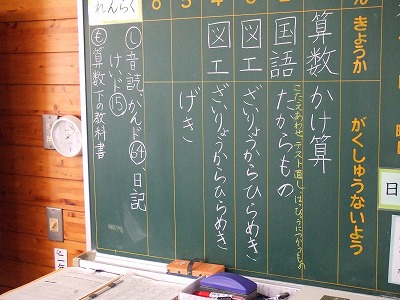 きょうか
がくしゅうないよう
算数
かけ算
国語
たからもの
こたえあわせ、テスト直し、は
図工
ざいりょうからひらめき
図工
ざいりょうからひらめき
げき
3
4
5
6
れんらく
し 音読 かんド64、日記
けいド15
も 算数下の教科書
日